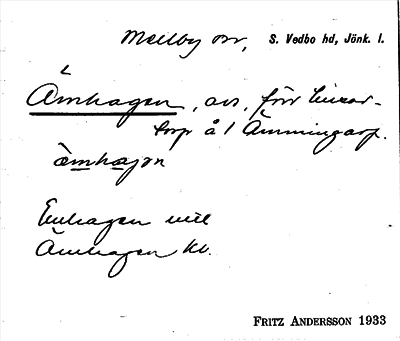 Mellby sn, S. Vedbo hd, Jönk. l.
Ämhagen, avs, förr
torp å 1 Ämmingarp.
ämhagen
Emhagen
Ämhagen kb.
FRITZ ANDERSSON 1933